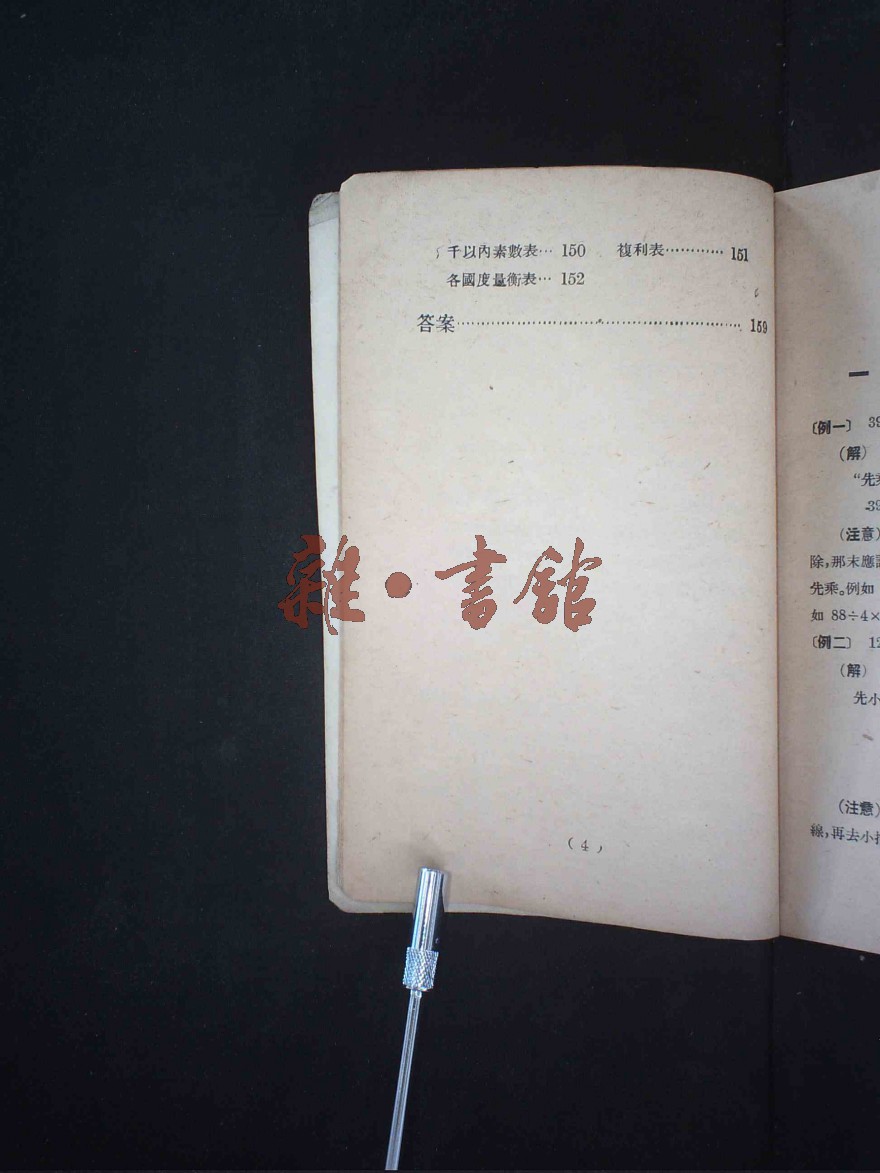 千以內素數表… 150 複利表………… 151
各國度量衡表… 152
答案…………………………………… 159
雜·書館
(4)
一
〔例一〕 39
(解)
“先乘
39
(注意)
除,那末應
先乘。例如
如 88÷4×
〔例二〕 12
(解)
先小
(注意)
線,再去小